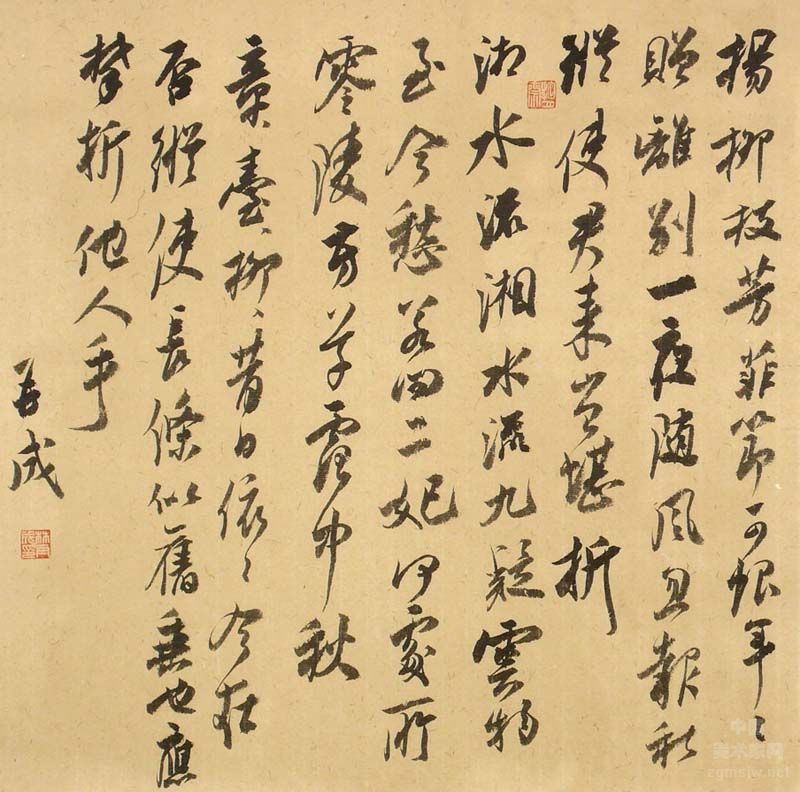 楊柳枝芳菲節可恨年〻
贈離別一夜隨風忽報秋
縱使君來豈堪折
湘水流湘水流九疑雲物
至今愁若問二妃何處所
零陵芳草露中秋
章臺〻柳〻昔日依〻今在
否縱使長條似舊垂也應
攀折他人手
成
中国
美术家网
zgmsjw.net